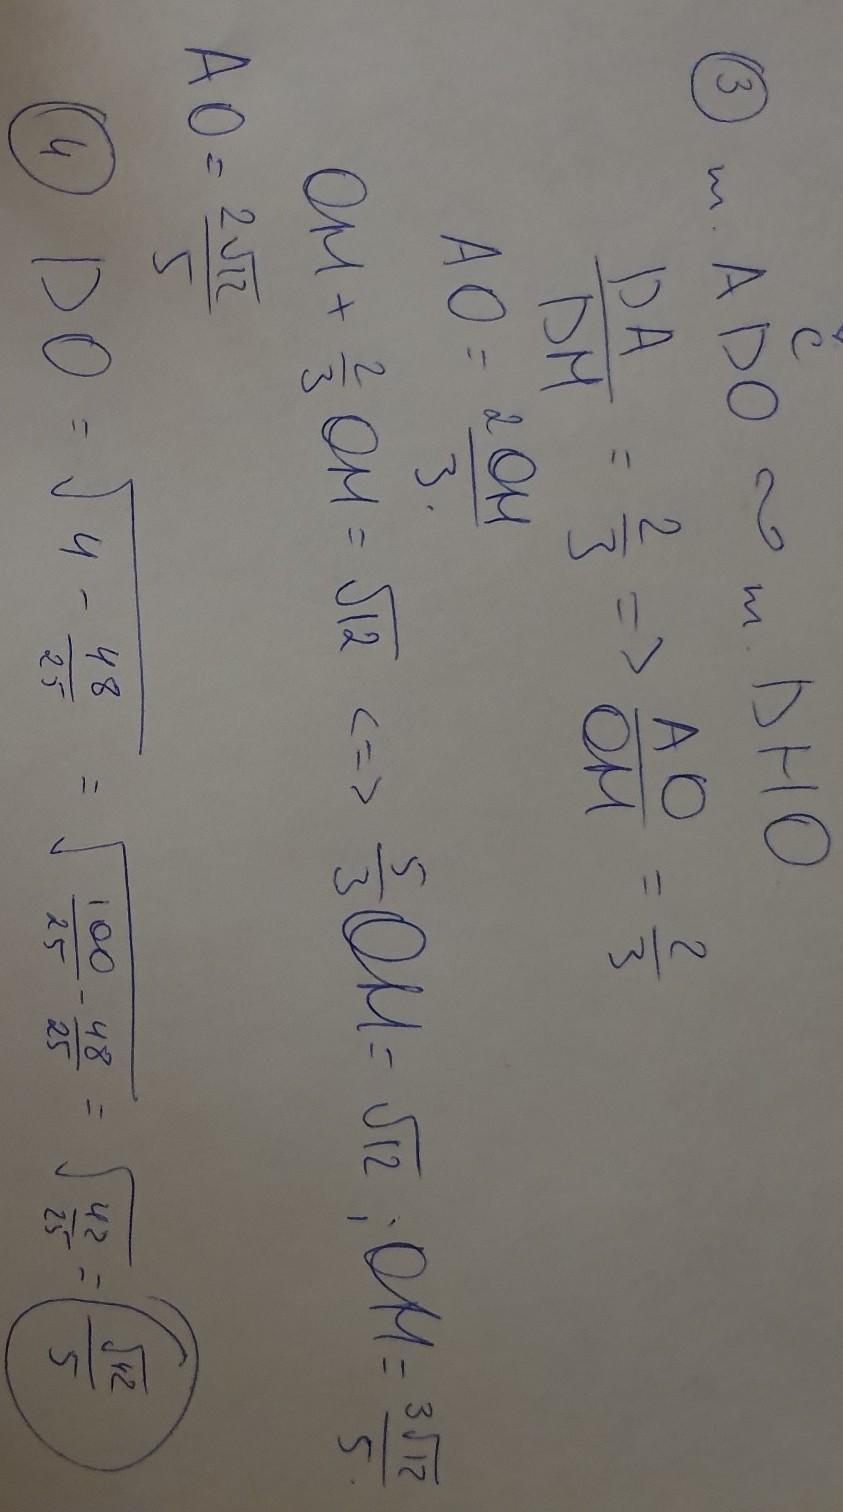 ③ т. ADO ~ т. DMO
DA/DM = 2/3 => AO/OM = 2/3
AO = 2OM/3.
OM + 2/3 OM = √12 <=> 5/3 OM = √12 ; OM = 3√12/5.
AO = 2√12/5
④ DO = √(4 - 48/25) = √(100/25 - 48/25) = √(42/25) = √42/5